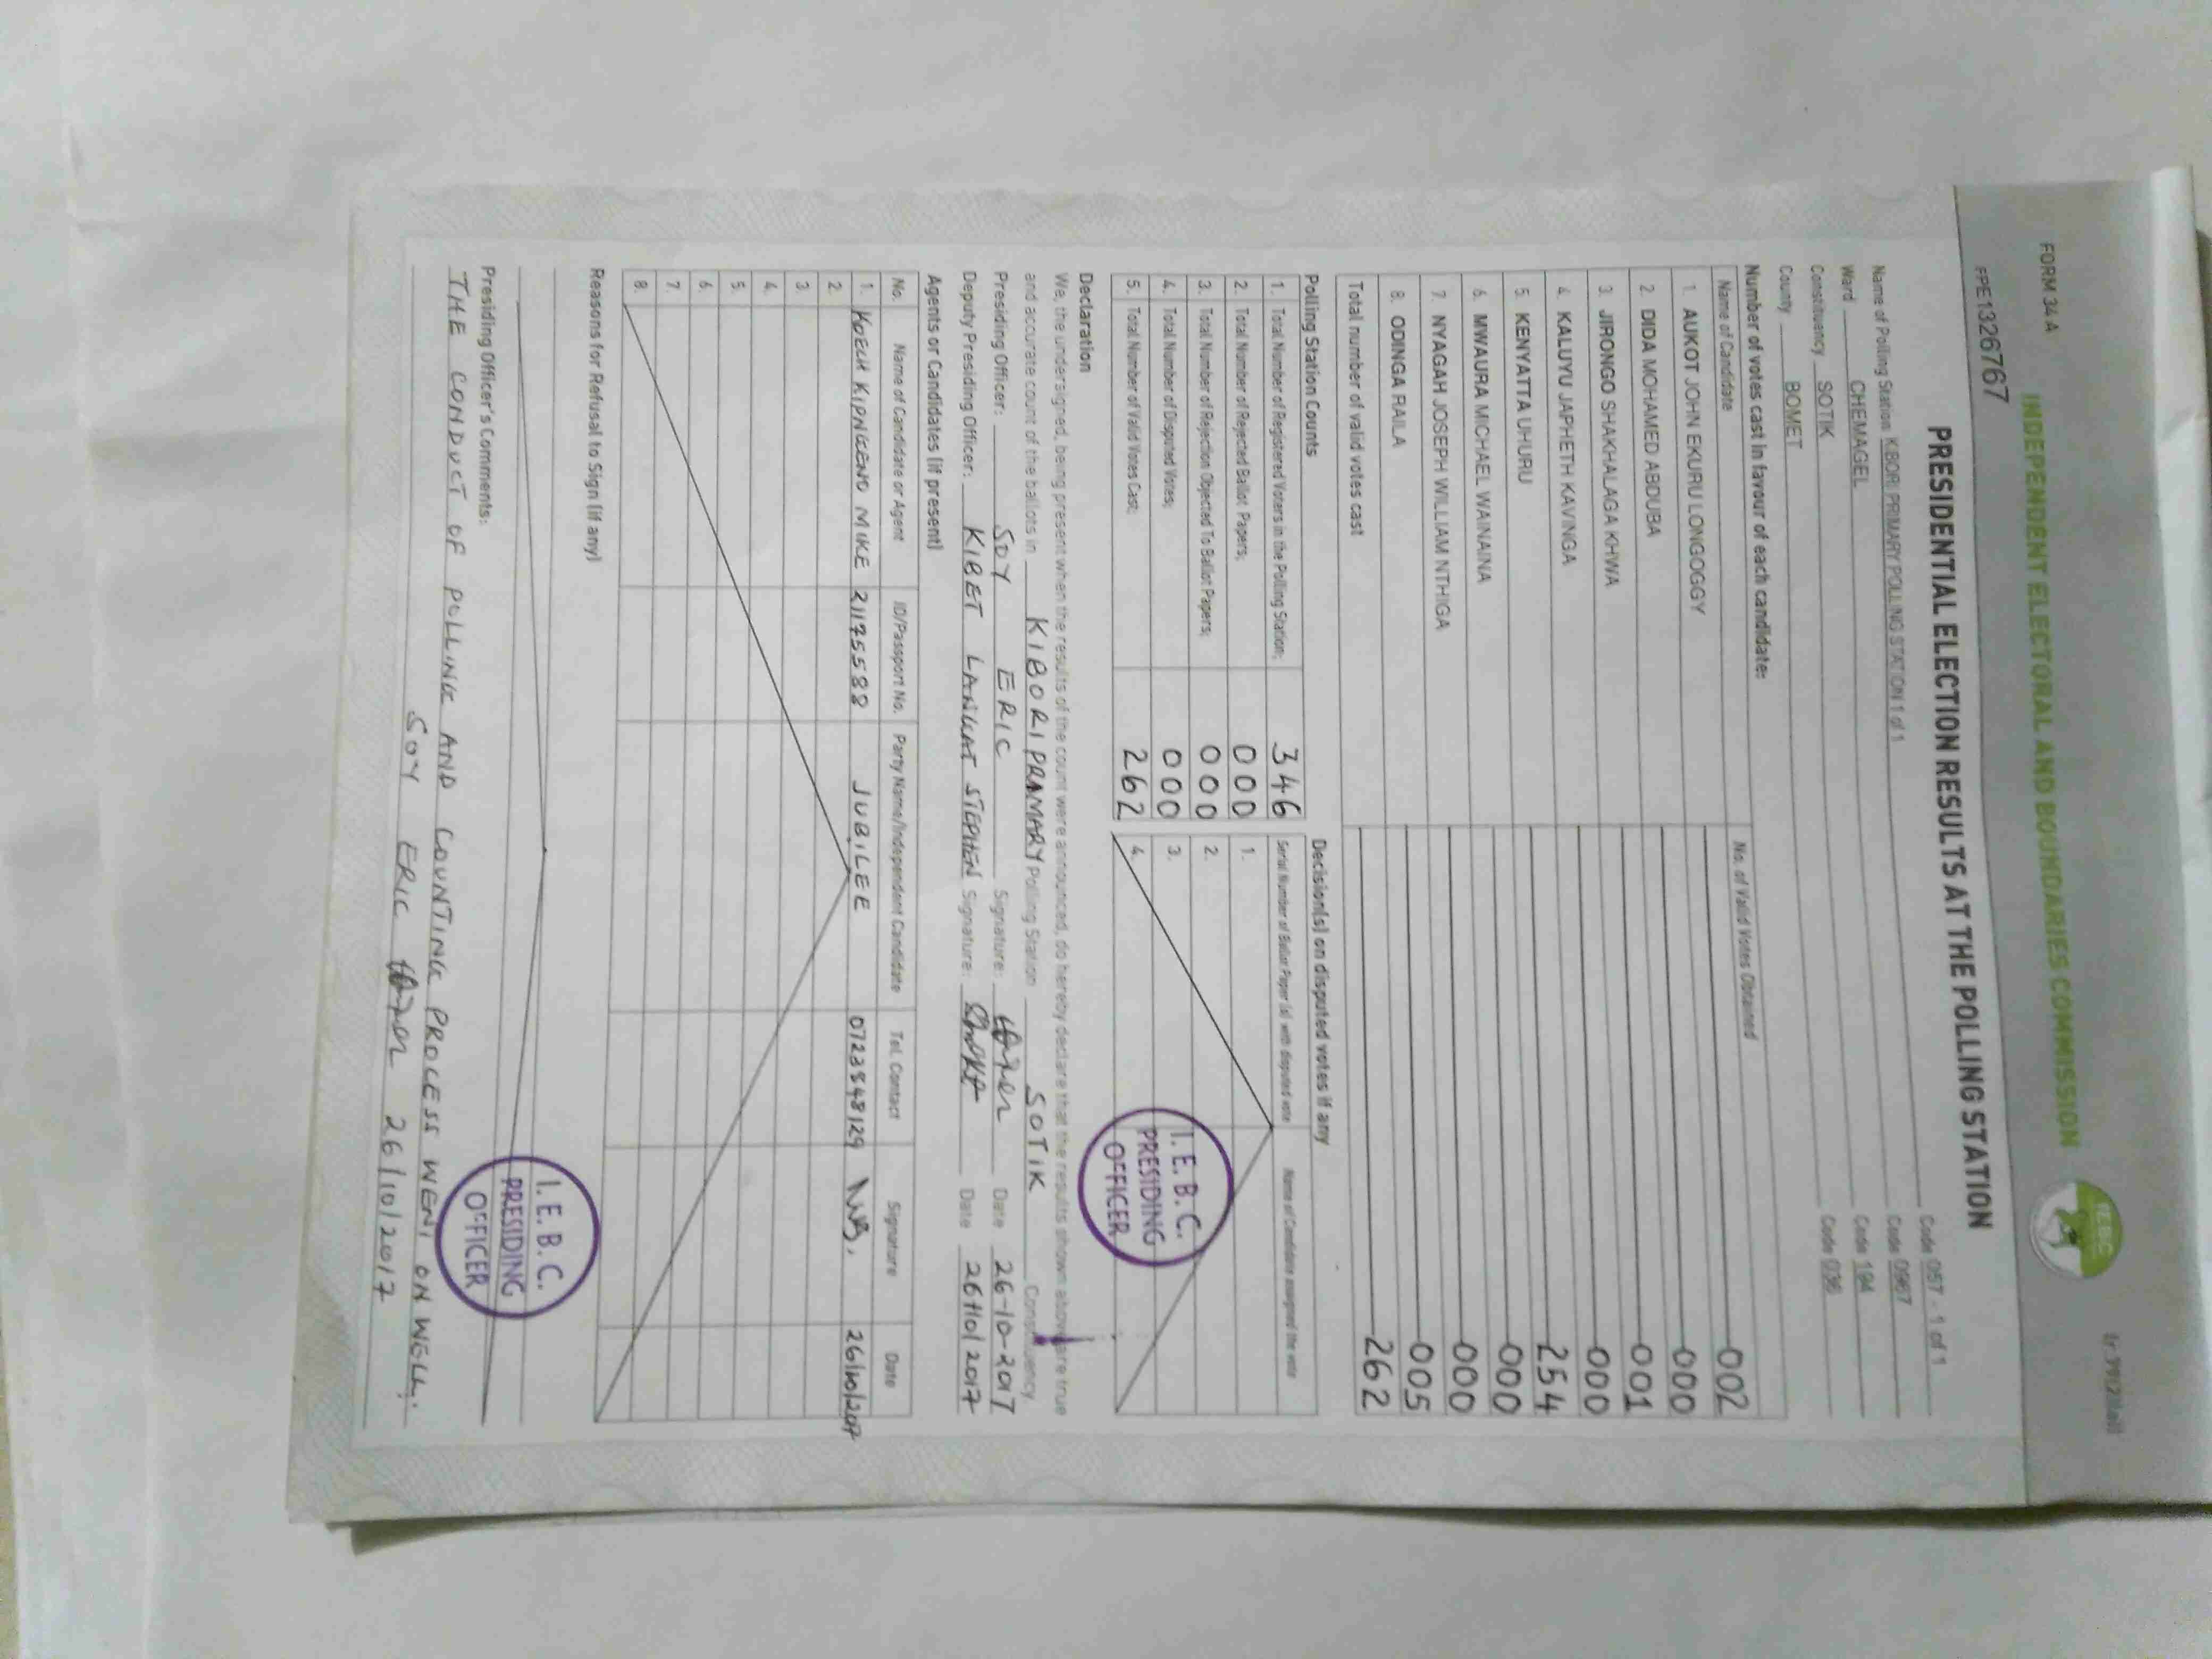 Lr 7912 Mail
FORM 34 A
INDEPENDENT ELECTORAL AND BOUNDARIES COMMISSION
IEBC
FPE1326767
PRESIDENTIAL ELECTION RESULTS AT THE POLLING STATION
Name of Polling Station KIBORI PRIMARY POLLING STATION 1 of 1 Code 057 - 1 of 1
Ward CHEMAGEL Code 0967
Constituency SOTIK Code 194
County BOMET Code 036
Number of votes cast in favour of each candidate:
Name of Candidate No. of Valid Votes Obtained
1. AUKOT JOHN EKURU LONGOGGY 002
2. DIDA MOHAMED ABDUBA 000
3. JIRONGO SHAKHALAGA KHWA 001
4. KALUYU JAPHETH KAVINGA 000
5. KENYATTA UHURU 254
6. MWAURA MICHAEL WAINAINA 000
7. NYAGAH JOSEPH WILLIAM NTHIGA 000
8. ODINGA RAILA 005
Total number of valid votes cast 262
Polling Station Counts Decision(s) on disputed votes if any
1. Total Number of Registered Voters in the Polling Station; 346 Serial Number of Ballot Paper (s) with disputed vote Name of Candidate assigned the vote
2. Total Number of Rejected Ballot Papers; 000 1.
3. Total Number of Rejection Objected To Ballot Papers; 000 2.
4. Total Number of Disputed Votes; 000 3.
5. Total Number of Valid Votes Cast; 262 4.
I. E. B. C.
PRESIDING
OFFICER
Declaration
We, the undersigned, being present when the results of the count were announced, do hereby declare that the results shown above are true
and accurate count of the ballots in KIBORI PRAMARY Polling Station SOTIK Constituency.
Presiding Officer: SOY ERIC Signature: Date 26-10-2017
Deputy Presiding Officer: KIBET LANGAT STEPHEN Signature: Date 26/10/2017
Agents or Candidates (if present)
No. Name of Candidate or Agent ID/Passport No. Party Name/Independent Candidate Tel. Contact Signature Date
1. KOECH KIPNGENO MIKE 21175588 JUBILEE 0723548129 26/10/2017
2.
3.
4.
5.
6.
7.
8.
Reasons for Refusal to Sign (if any)
I. E. B. C.
PRESIDING
OFFICER
Presiding Officer's Comments:
THE CONDUCT OF POLLING AND COUNTING PROCESS WENT ON WELL;
SOY ERIC 26/10/2017